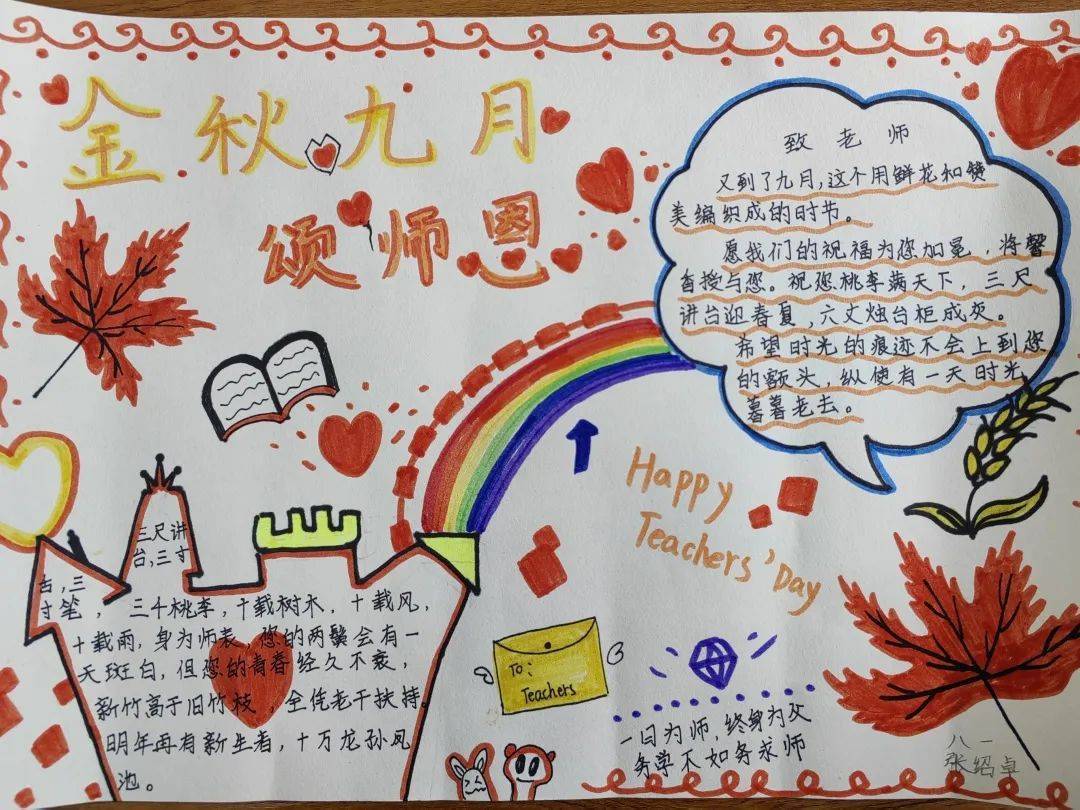 金秋九月
颂师恩
致老师
又到了九月,这个用鲜花和赞
美编织成的时节。
愿我们的祝福为您加冕,将馨
香授与您。祝您桃李满天下,三尺
讲台迎春夏,六丈烛台柜成灰。
希望时光的痕迹不会上到您
的额头,纵使有一天时光
暮暮老去。
Happy
Teachers' Day
三尺讲
台,三寸
舌,三
寸笔,三千桃李,十载树木,十载风,
十载雨,身为师表,您的两鬓会有一
天斑白,但您的青春经久不衰,
新竹高于旧竹枝,全凭老干扶持。
明年再有新生者,十万龙孙凤
池。
To:
Teachers
一日为师,终身为父
务学不如务求师
八一
张绍卓